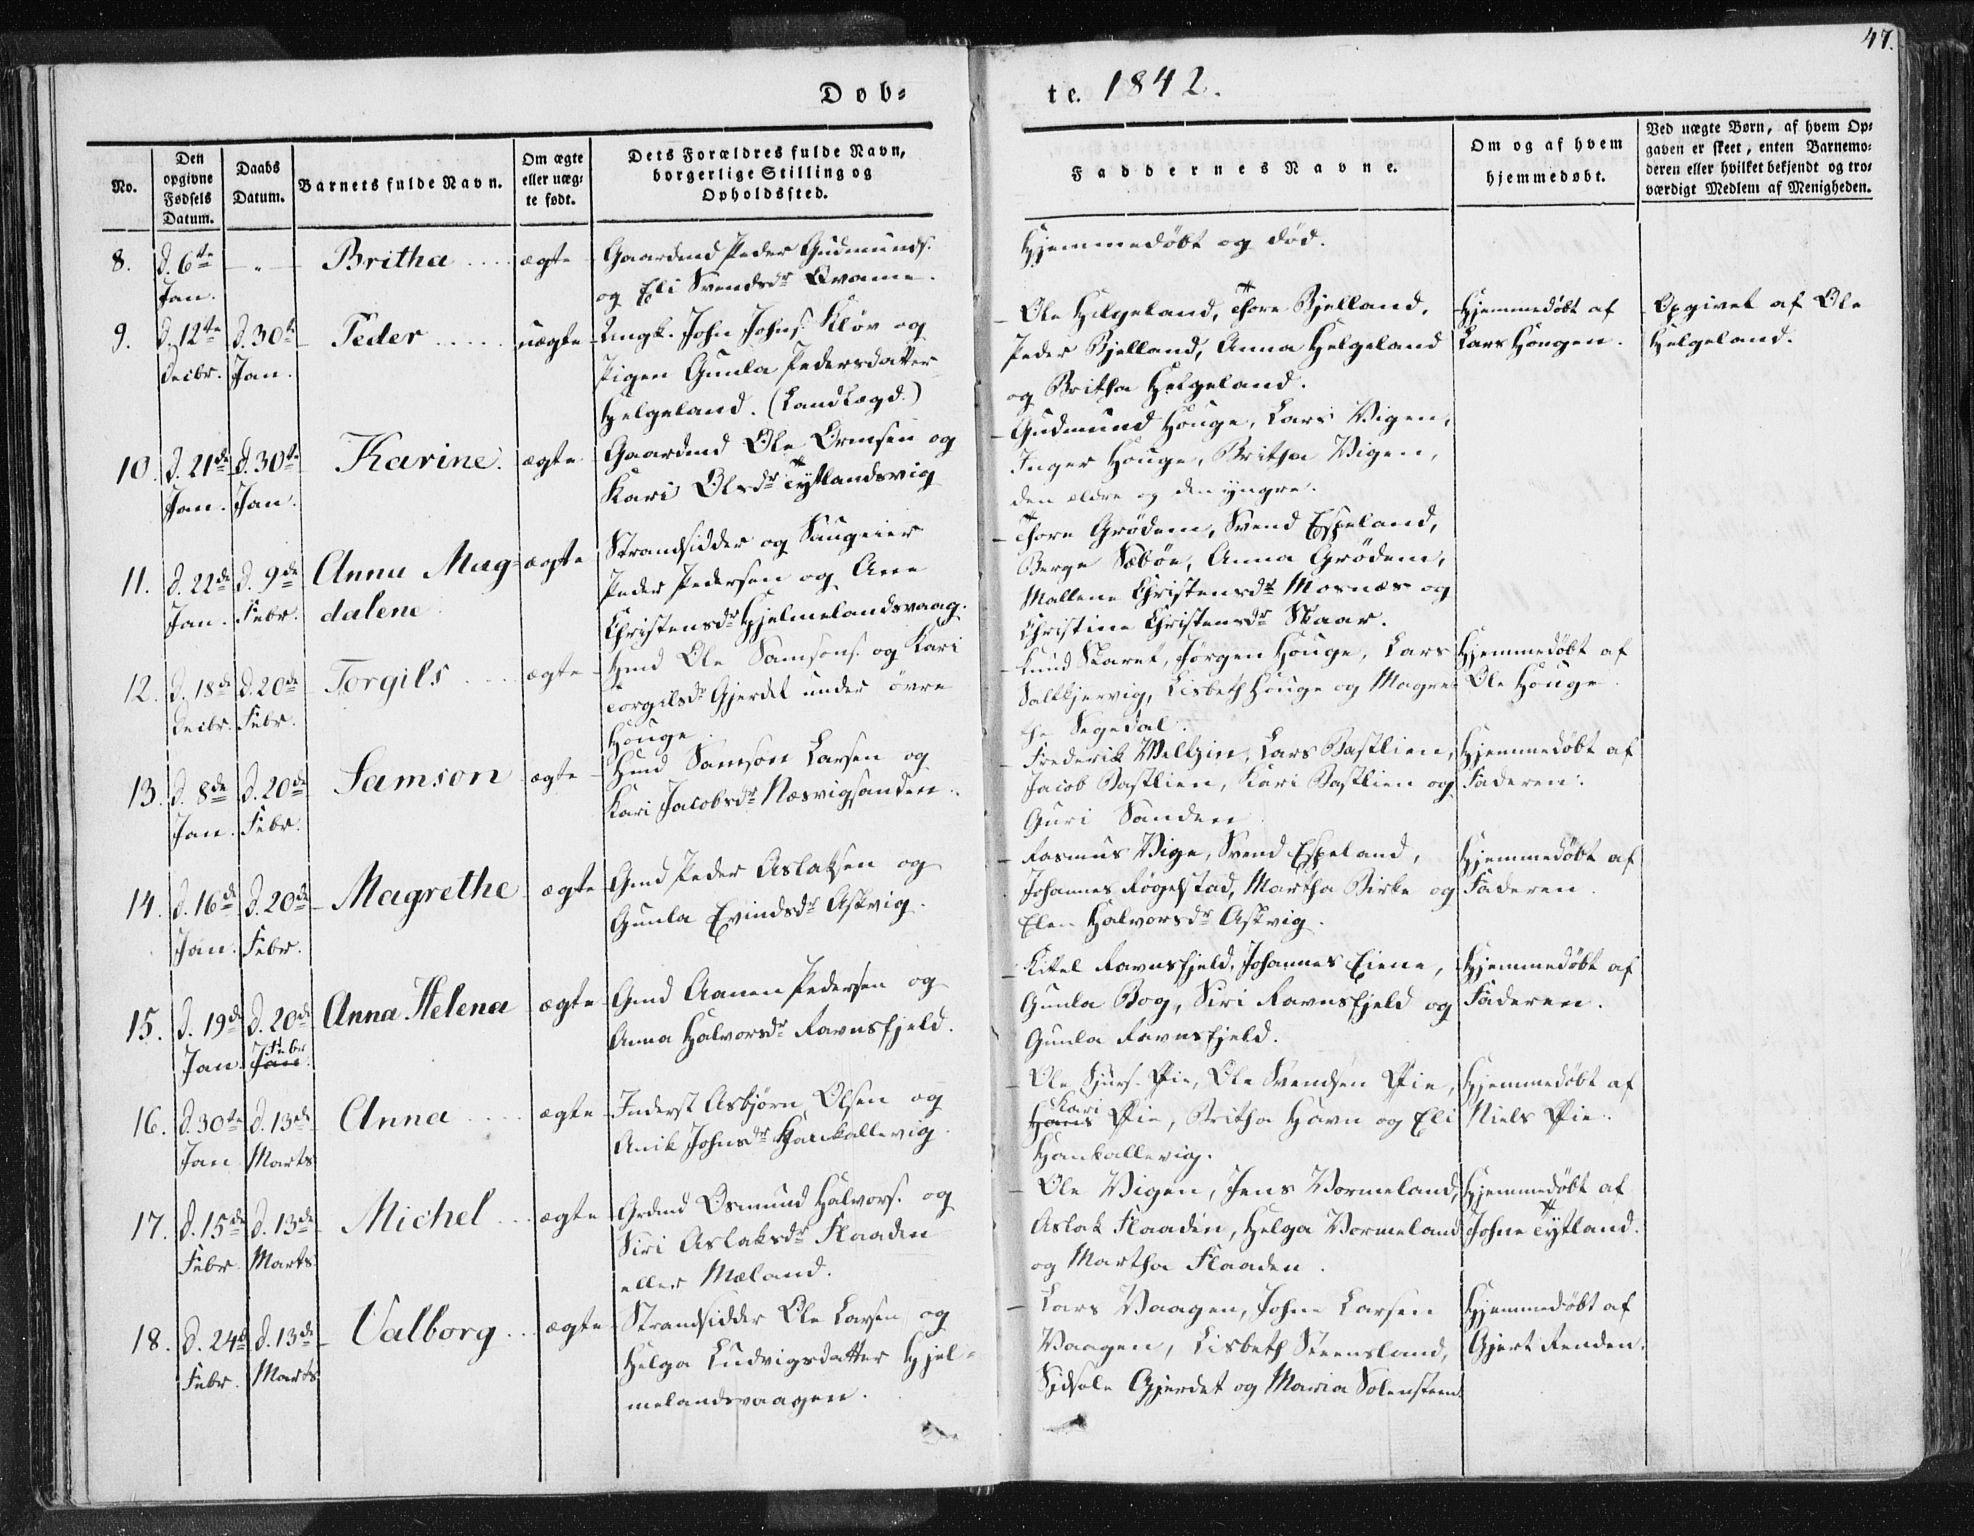 47.
Døb=
te. 1842.
No.
Den opgivne Fødsels Datum.
Daabs Datum.
Barnets fulde Navn.
Om ægte eller uæg= te født.
Dets Forældres fulde Navn, borgerlige Stilling og Opholdssted.
Faddernes Navne.
Om og af hvem hjemmedøbt.
Ved uægte Børn, af hvem Op= gaven er skeet, enten Barnemo= deren eller hvilket bekjendt og tro= værdigt Medlem af Menigheden.
8. d. 6te Jan. — " — Britha .... ægte
Gaardmd Peder Gudmunds:
og Eli Svendsdr Qvame.
Hjemmedöbt og död.
9. d. 12te Decbr. d. 30te Jan. Peder ..... uægte
Ungk. John Johns: Kløv og
Pigen Gunla Pedersdatter
Helgeland. (Landlægd.)
Ole Helgeland, Thore Bjelland,
Peder Bjelland, Anna Helgeland
og Britha Helgeland.
Hjemmedöbt af
Lars Hougen.
Opgivet af Ole
Helgeland.
10. d. 21de Jan. d. 30te Jan. Karine. ægte
Gaardmd Ole Ormsen og
Kari Olsdr Tytlandsvig
Gudmund Houge, Lars Vigen,
Inger Houge, Britha Vigen,
den ældre og den yngre.
11. d. 22de Jan. d. 9de Febr. Anna Mag=
dalene ægte
Strandsidder og Saugeier
Peder Pedersen og Ane
Christensdr Hjelmelandsvaag.
Thore Grödem, Svend Espeland,
Berge Sæböe, Anna Grödem,
Mallene Christensdr Mosnæs og
Christine Christensdr Skaar.
12. d. 18de Decbr. d. 20de Febr. Torgils .... ægte
Hmd Ole Samsons: og Kari
Torgilsdr Gjerdet under övre
Houge.
Knud Skaret, Jörgen Houge, Lars
Saltkjervig, Lisbeth Houge og Magre=
the Segedal.
Hjemmedöbt af
Ole Houge.
13. d. 8de Jan. d. 20de Febr. Samson ægte
Hmd Samson Larsen og
Kari Jacobsdr Næsvigsanden.
Frederik Veltzin, Lars Bastlien,
Jacob Bastlien, Kari Bastlien og
Guri Sanden
Hjemmedöbt af
Faderen.
14. d. 16de Jan. d. 20de Febr. Magrethe ægte
Gmd Peder Aslaksen og
Gunla Evindsdr Askvig.
Rasmus Vige, Svend Espeland,
Johannes Fogelstad, Martha Birke og
Elen Halvorsdr Askvig.
Hjemmedöbt af
Faderen.
15. d. 19de Jan. d. 20de Febr Jan. Anna Helena ægte
Gmd Aanen Pedersen og
Anna Halvorsdr Ravnsfjeld.
Kittel Ravnsfjeld, Johannes Eiene,
Gunla Bog, Siri Ravnsfjeld og
Gunla Ravnsfjeld.
Hjemmedöbt af
Faderen.
16. d. 30te Jan d. 13de Marts Anna .... ægte
Inderst Asbjørn Olsen og
Anik Johnsdr Hankallevig
Ole Sjurs: Øie, Ole Svendsen Øie,
Hans Kari Øie, Britha Havn og Eli
Hankallevig.
Hjemmedöbt af
Niels Øie.
17. d. 15de Febr. d. 13de Marts Michel ... ægte
Grdmd Osmund Halvors: og
Siri Aslaksdr Flaaden
eller Mæland.
Ole Vigen, Jens Vormeland,
Aslak Flaaden, Helga Vormeland
og Martha Flaaden.
Hjemmedöbt af
Johne Tytland.
18. d. 24de Febr. d. 13de Marts Valborg .. ægte
Strandsidder Ole Larsen og
Helga Ludvigsdatter Hjel=
melandsvaagen.
Lars Vaagen, Johne Larsen
Vaagen, Lisbeth Steensland,
Sidsele Gjerdet og Maria
Hjemmedöbt af
Gjert Renden.